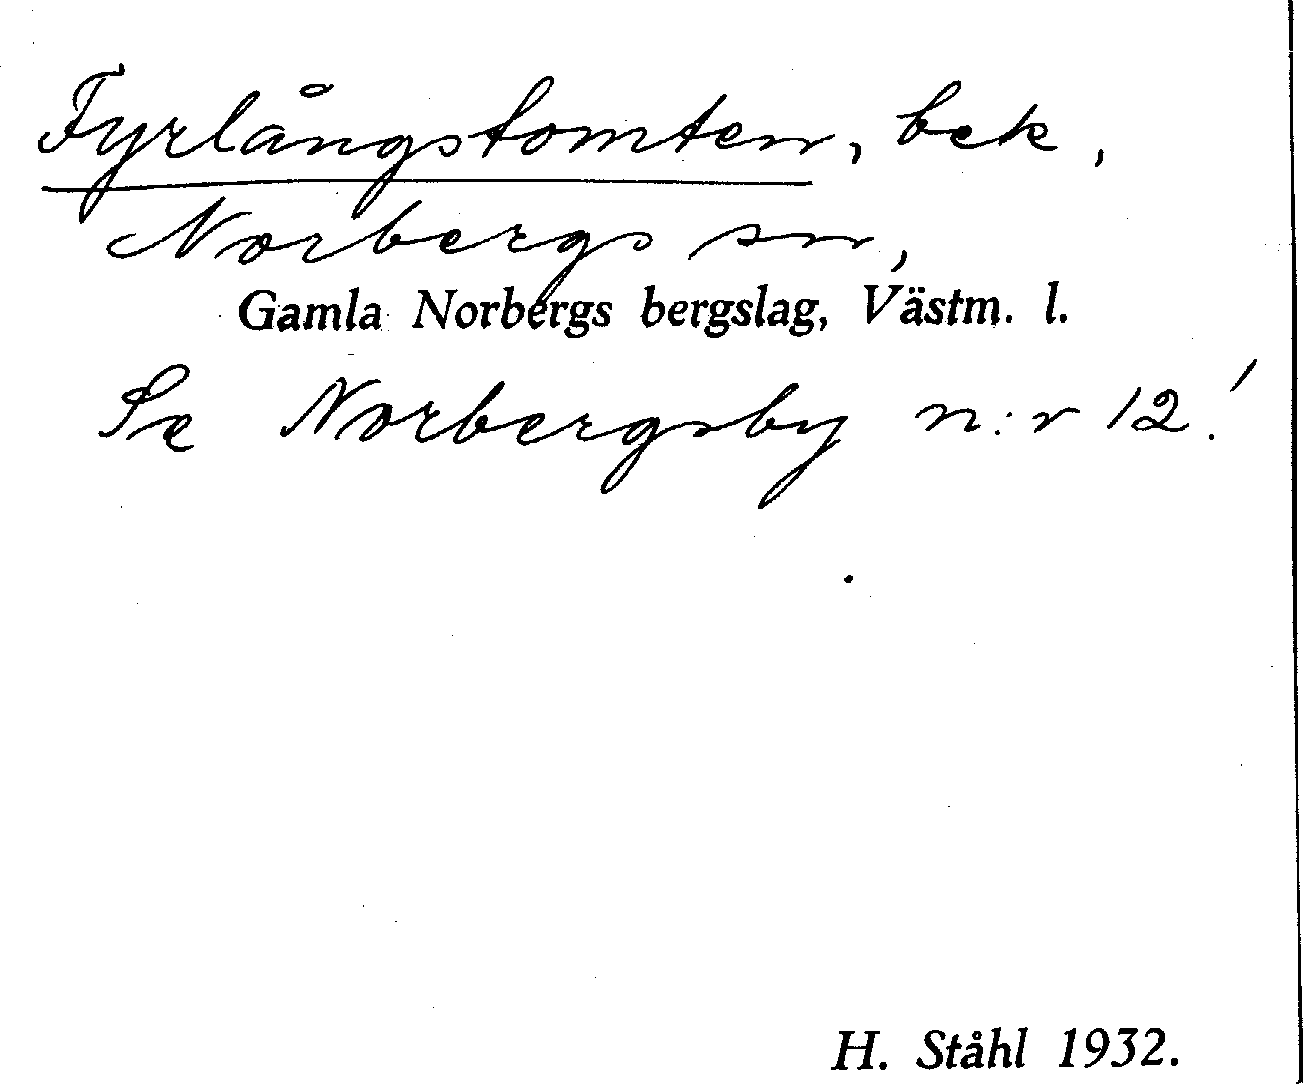 Fyrlångstomten, bek,
Norbergs sn,
Gamla Norbergs bergslag, Västm. l.
Se Norbergsby n:r 12!
H. Ståhl 1932.